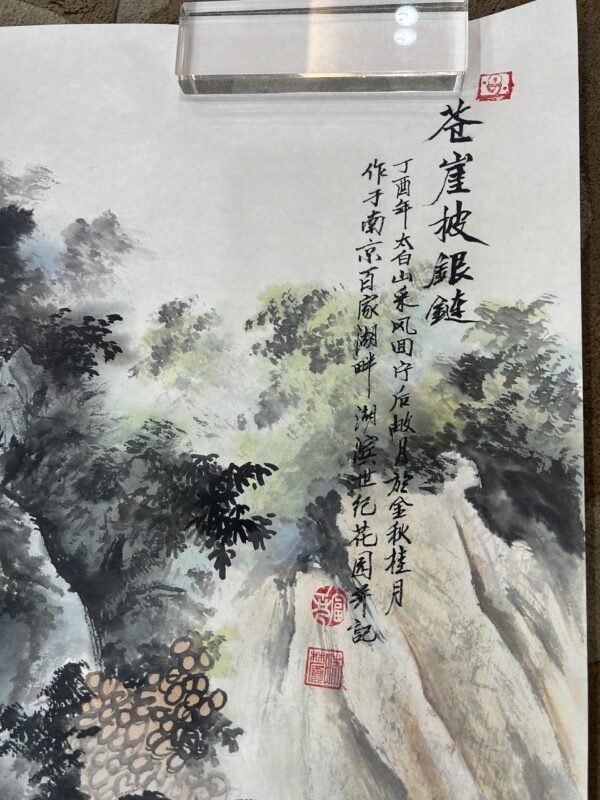 苍崖披銀鏈
丁酉年太白山采风回宁后故月於金秋桂月
作于南京百家湖畔湖滨世纪花园并記